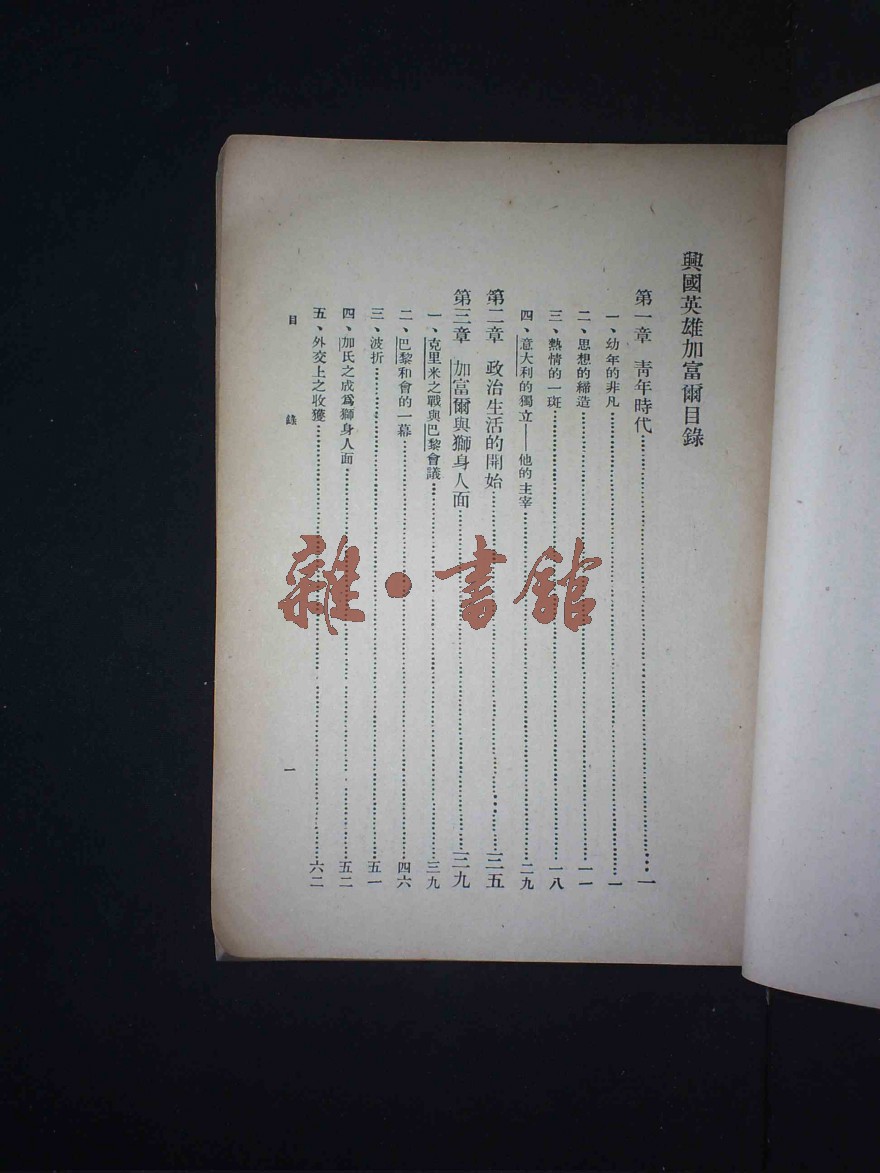 興國英雄加富爾目錄
第一章 靑年時代……一
一、幼年的非凡……一
二、思想的締造……一一
三、熱情的一斑……一八
四、意大利的獨立——他的主宰……二九
第二章 政治生活的開始……三五
第三章 加富爾與獅身人面……三九
一、克里米之戰與巴黎會議……三九
二、巴黎和會的一幕……四六
三、波折……五一
四、加氏之成爲獅身人面……五二
五、外交上之收獲……六二
目錄
一
雜·書館